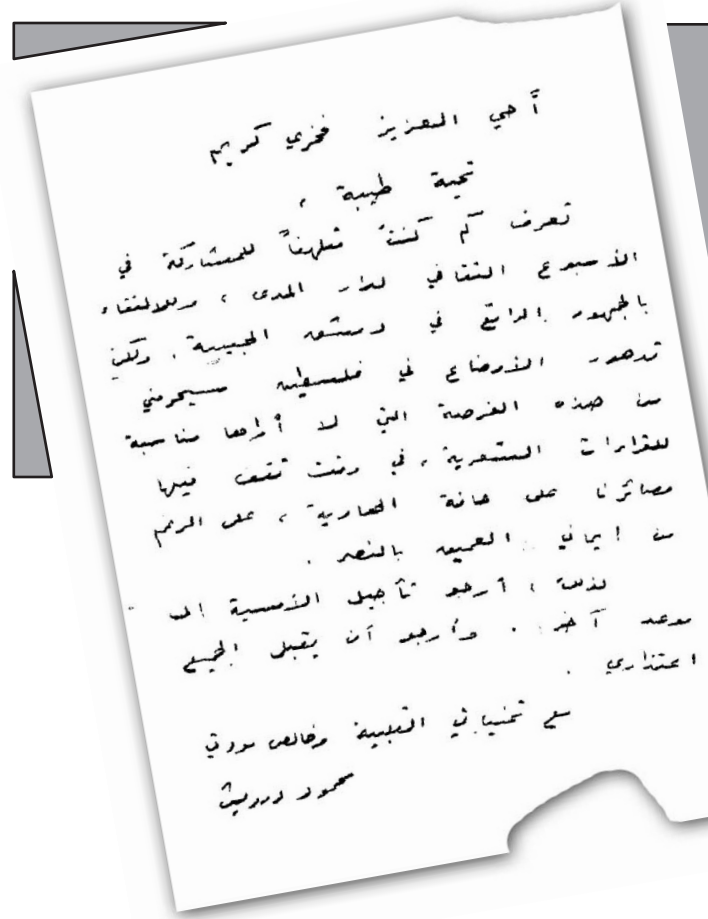 أخي العزيز فخري كريم
تحية طيبة ،
تعرف كم كنتُ متلهفاً للمشاركة في
الأسبوع الثقافي لدار المدى ، وللالتقاء
بالجمهور الرائع في دمشق الحبيبة . ولكن
تدهور الأوضاع في فلسطين سيحرمني
من هذه الفرصة التي لا أراها مناسبة
للقراءات الشعرية ، في وقت تقف فيها
مصائرنا على حافة الهاوية ، على الرغم
من ايماني العميق بالنصر .
لذلك ، أرجو تأجيل الأمسية إلى
موعد آخر . وأرجو أن يقبل الجميع
اعتذاري .
مع تمنياتي القلبية وخالص مودتي
محمود درويش